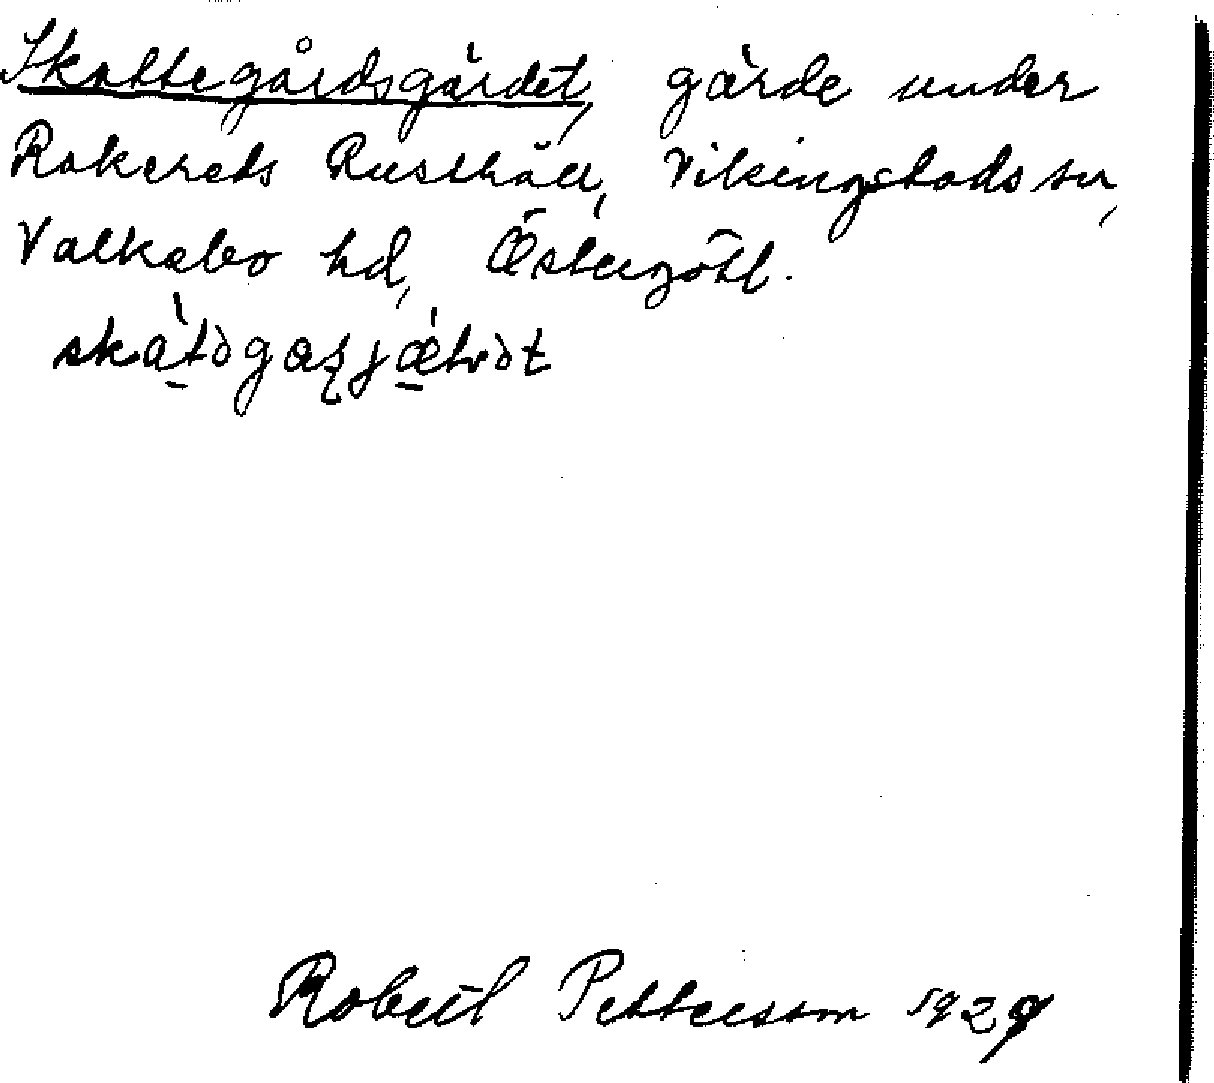 Skattegårdsgärdet, gärde under
Rakereds Rusthåll, Vikingstads sn,
Valkebo hd, Östergötl.
skàtəgaʂjǽɖət
Robert Pettersson 1929